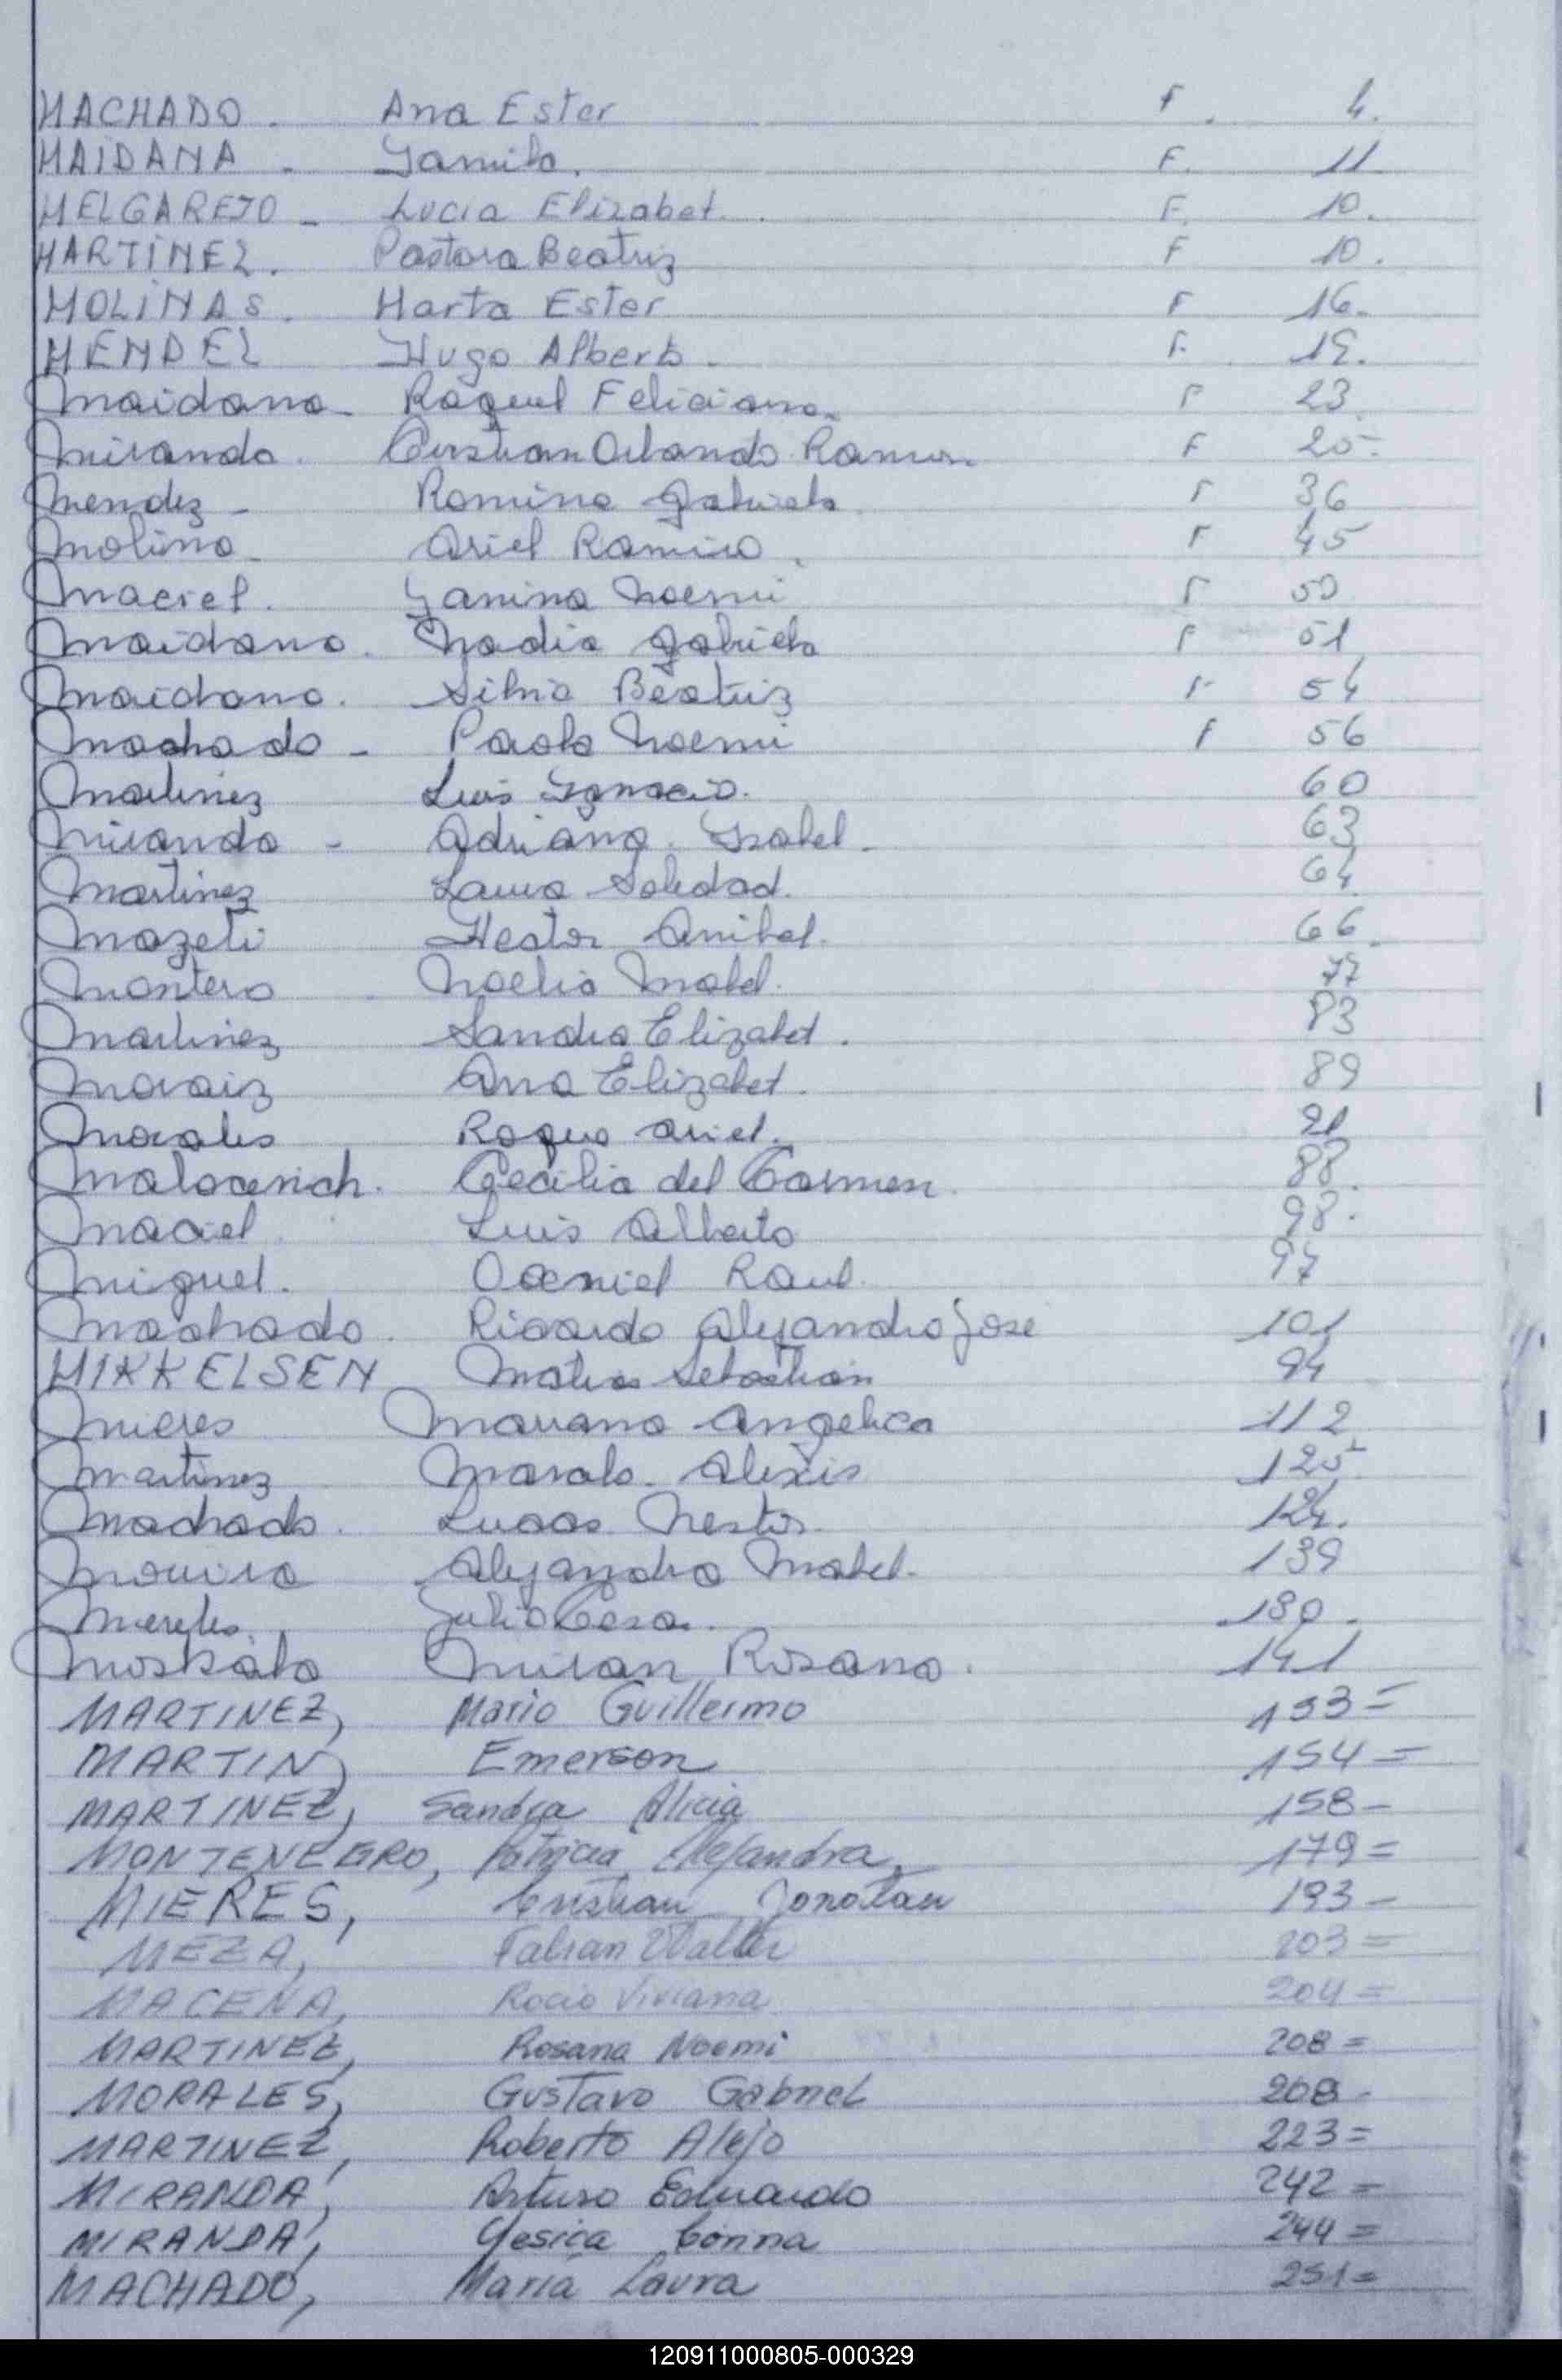 MACHADO - Ana Ester F. 4.
MAIDANA - Yamila. F. 11
MELGAREJO - Lucia Elizabet. F. 10.
MARTINEZ. Pastora Beatriz F 10.
MOLINAS. Marta Ester F 16.
MENDEZ Hugo Alberto - F. 19.
Maidana - Raquel Feliciana. F 23
Miranda. Cristian Orlando Ramon. F 25-
Mendez - Romina Gabriela F 36
Molina - Ariel Ramiro F 45
Maciel. Yanina Noemi F 50
Maidana. Nadia Gabriela F 51
Maidana. Silvia Beatriz F 54
Machado - Paola Noemi F 56
Martinez Luis Ygnacio. 60
Miranda - Adriana Isabel. 63
Martinez Laura Soledad. 64
Mazeti Hector Anibal. 66.
Montero Noelia Mabel. 77
Martinez Sandra Elizabet. 83
Ana Elizabet. 89
Morales Roque Ariel. 91
Malocenich. Cecilia del Carmen. 88.
Maciel Luis Alberto 98.
Miguel. Daniel Raul. 97
Machado. Ricardo Alejandro Jose 101
MIKKELSEN Matias Sebastian 94
Mieres Mariana Angelica 112
Martinez Alexis 125
Machado. Lucas Nestor 124.
Moreira Alejandra Mabel. 139
Mereles. Julio Cesar. 130.
Moskalo Mirian Rosana. 141
MARTINEZ, Mario Guillermo 153=
MARTIN, Emerson 154=
MARTINEZ, Sandra Alicia 158-
MONTENEGRO, Patricia Alejandra, 179=
MIERES, Cristian Jonatan 193-
MEZA, Fabian Walter 203=
MACENA, Rocio Viviana 204=
MARTINEZ, Rosana Noemi 208=
MORALES, Gustavo Gabriel 208-
MARTINEZ, Roberto Alejo 223=
MIRANDA, Arturo Eduardo 242=
MIRANDA, Yesica Corina 244=
MACHADO, Maria Laura 251=
120911000805-000329